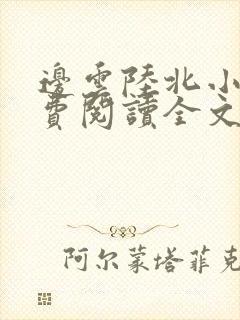 邊雲陸北小
費閱讀全文
阿尔蒙塔菲克